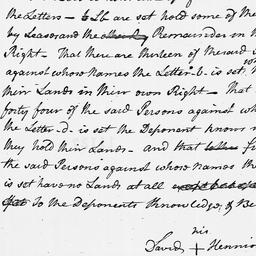 the Letters - & Lb are set hold some of the
by Lease and the Remainder in
Right - That there are thirteen of the said
against whose Names the Letter - b - is set
their Lands in their own Right - That
forty four of the said Persons against wh
the Letter - d - is set the Deponent knows n
they hold their Lands - and that fi
the said Persons against whose Names th
is set have no Lands at all
To the Deponents Knowledge & Be
his
David + Hennio